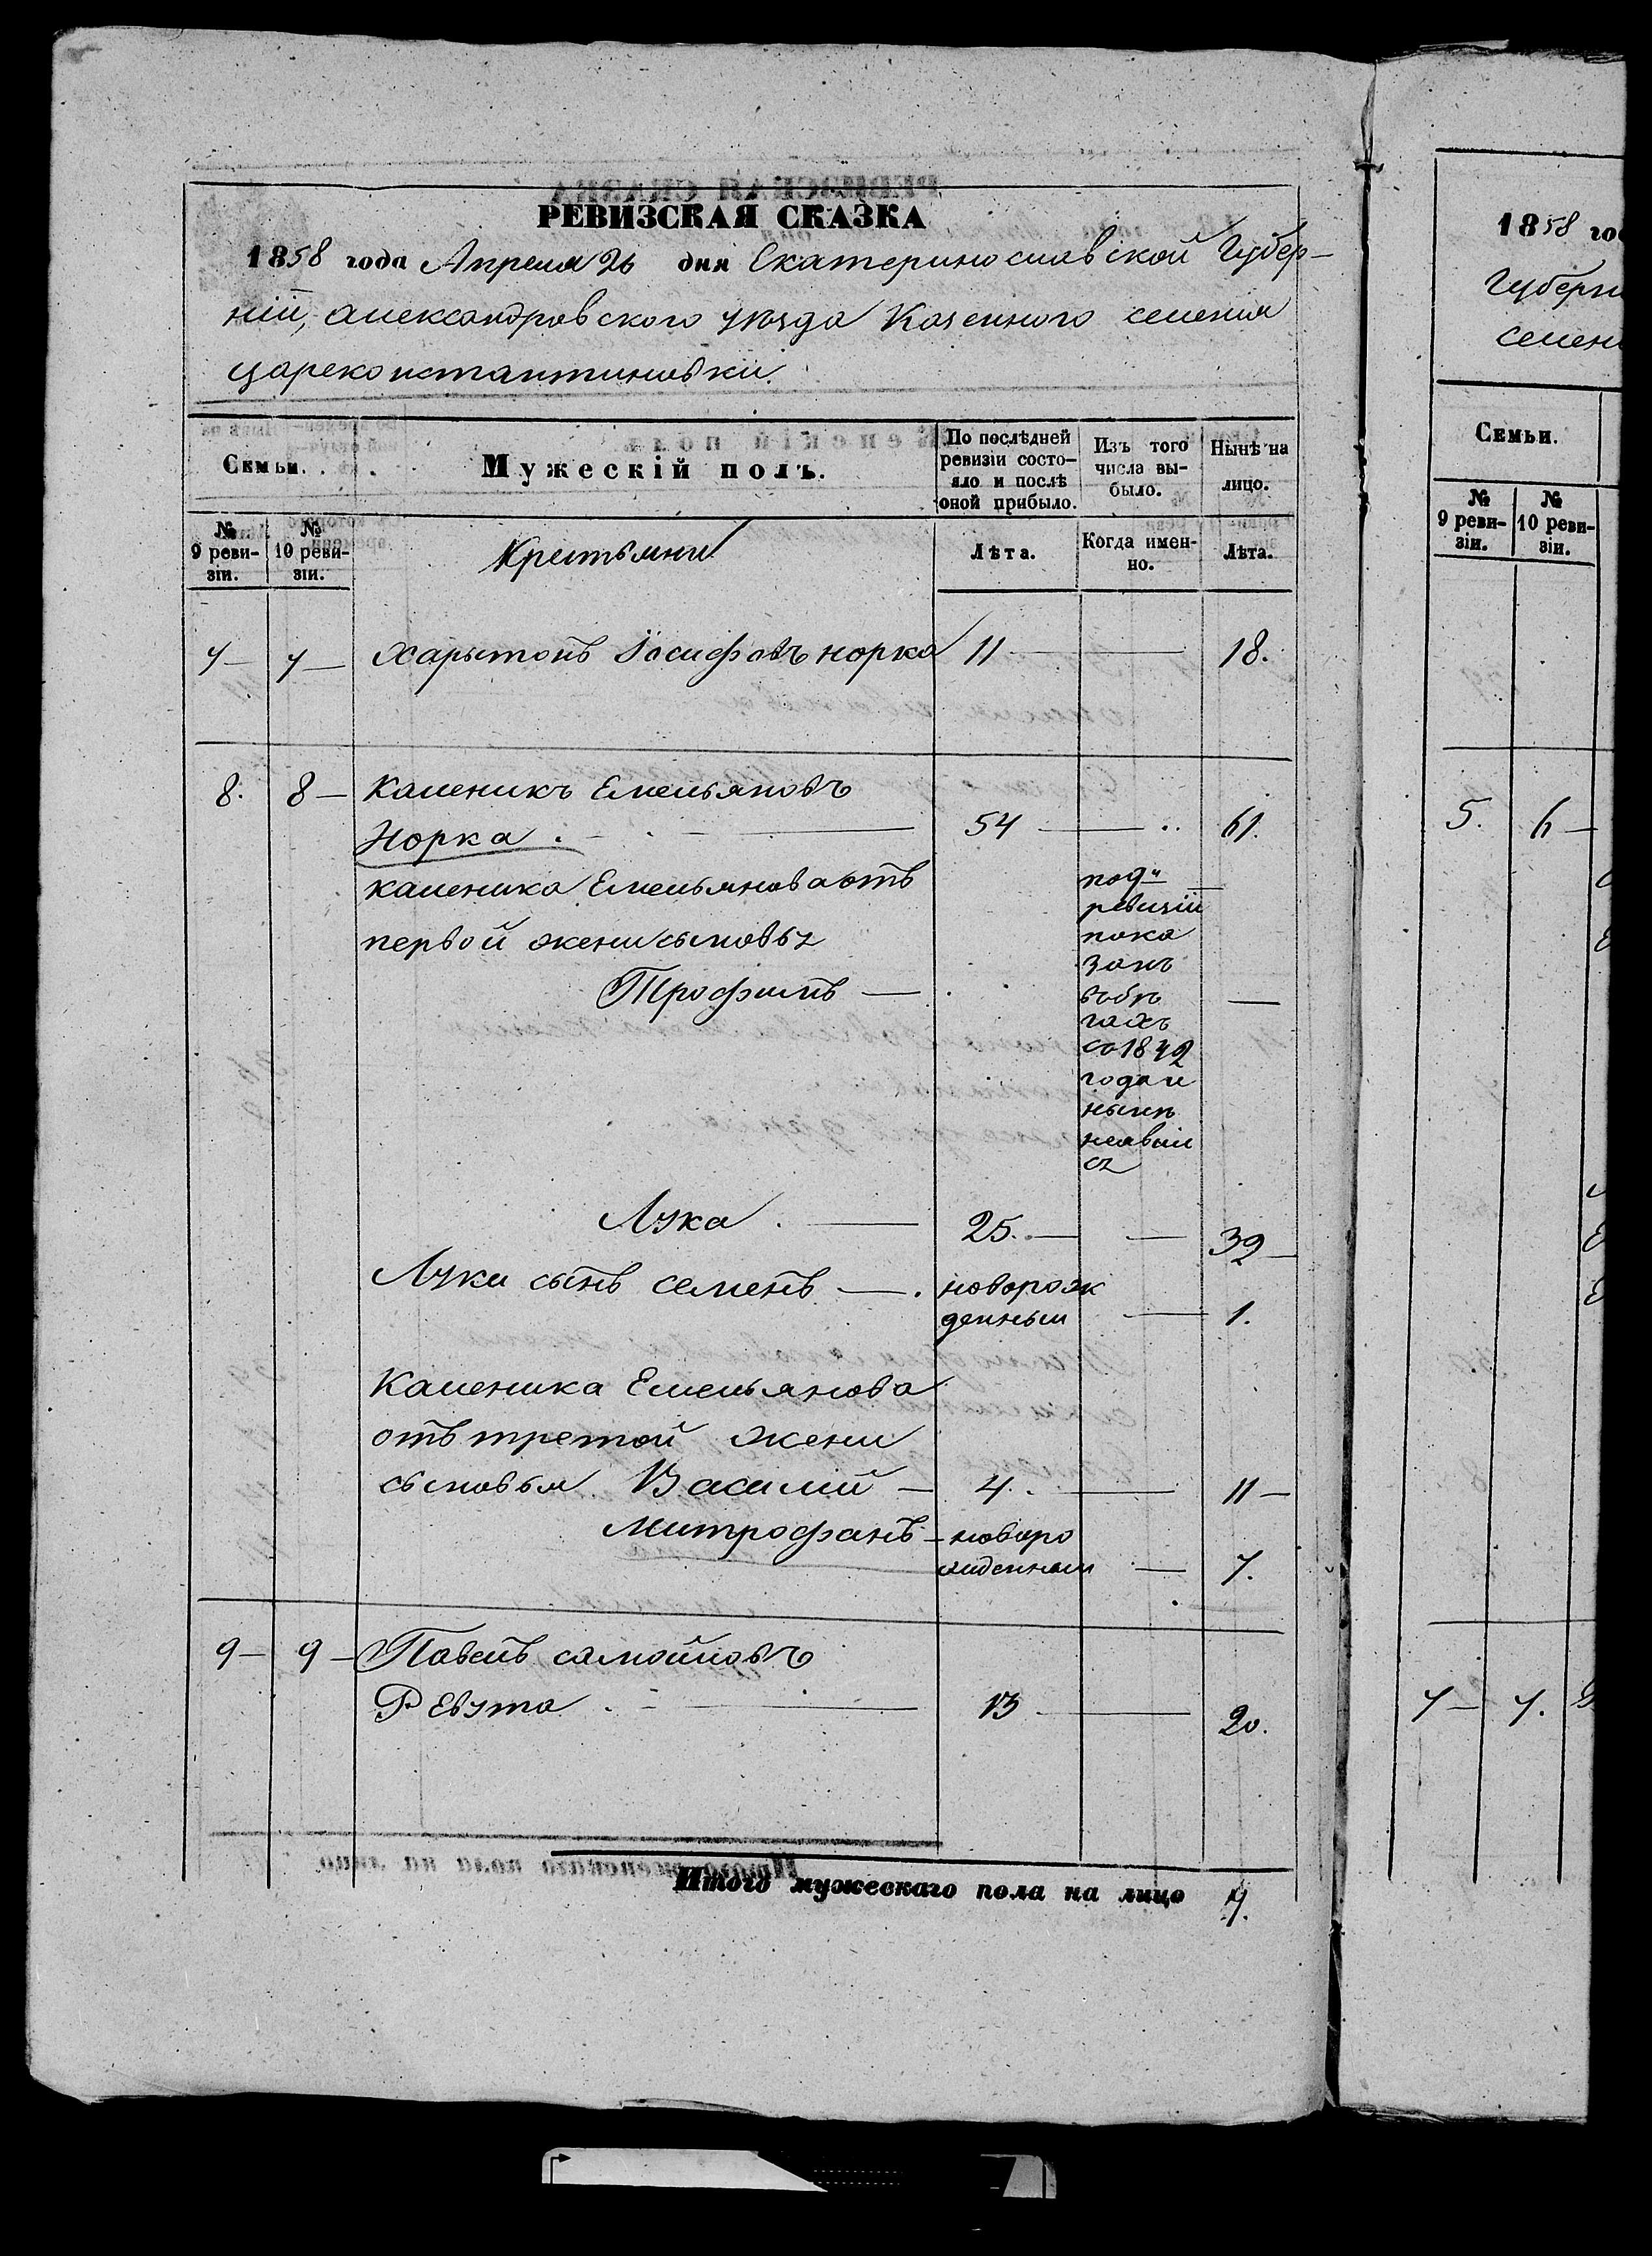 РЕВИЗСКАЯ СКАЗКА
1858 года Апреля 26 дня Екатеринославской Губер-
ніи, александровского уѣзда Казенного селения
цареконстантиновки.
Семьи. Мужескій полъ. По послѣдней ревизіи состо-яло и послѣ оной прибыло. Изъ того числа вы-было. Нынѣ на лицо.
№ 9 реви-зіи. № 10 реви-зіи. Крестьяни Лѣта. Когда имен-но. Лѣта.
7 — 7 — Харытонъ Іосифовъ норка 11 — 18.
8. 8 — Каленикъ Емельяновъ
Норка. — 54 — 61.
каленика Емельянова отъ
первой жени сыновья
Трофимъ —
по 9й
ревизіи
пока
занъ
въбѣ
гахъ
со 1842
года и
нынѣ
неявил
ся
Лука. — 25. — 32 —
Луки сынъ семенъ — . новорож
денный — 1.
Каленика Емельянова
отъ третой жени
сыновья Василий — 4. — 11 —
Митрофанъ — новоро
жденный — 7.
9 — 9 — Павелъ самойловъ
Ревута. — 13 — 20.
Итого мужескаго пола на лицо 7.
1858 го
Губерн
селен
Семьи.
№ 9 реви-зіи. № 10 реви-зіи.
5. 6 —
7 — 7.